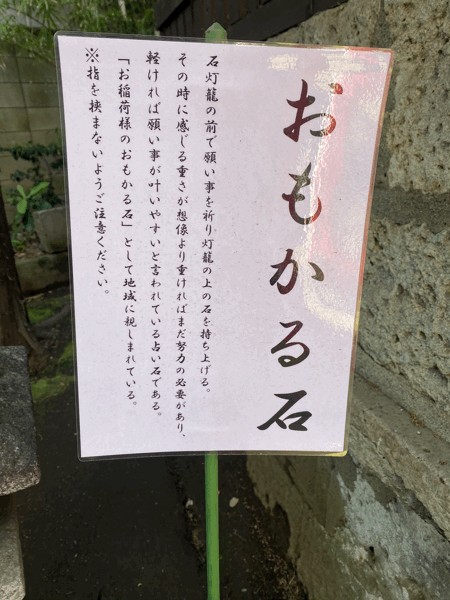 おもかる石
石灯籠の前で願い事を祈り灯籠の上の石を持ち上げる。
その時に感じる重さが想像より重ければまだ努力の必要があり、
軽ければ願い事が叶いやすいと言われている占い石である。
「お稲荷様のおもかる石」として地域に親しまれている。
※指を挟まないようご注意ください。